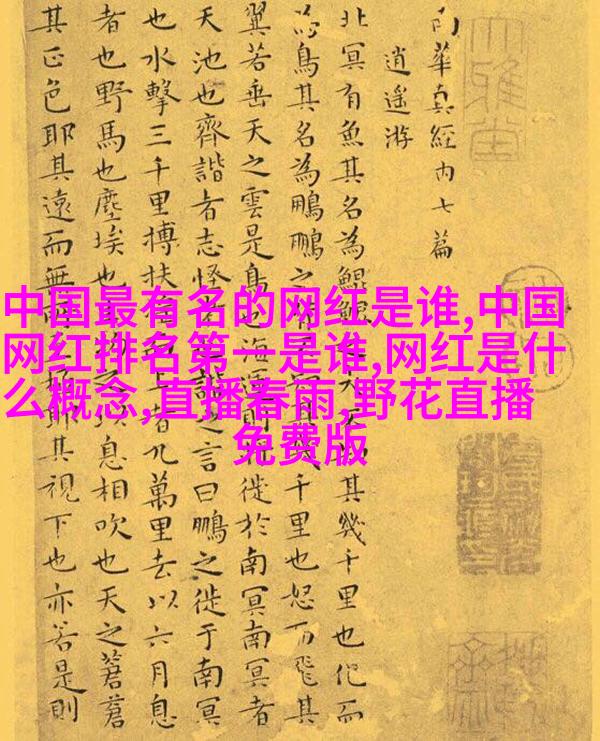 南華真經内七篇
逍遥游
北冥有魚其名為鯤鯤大其幾千里也化而
為鳥其名為鵬鵬之背幾千里也怒而飛其
翼若垂天之雲是鳥也海運徙於南冥南冥者
天池也齊諧者志怪諧之言曰鵬之徙于南冥
也水擊三千里搏扶搖上者九萬里去以六月息
者也野馬也塵埃也物之以息相吹也天之蒼蒼
其正色耶其遠而無所極耶其視下也亦若是則
大雅堂
中国最有名的网红是谁,中国
网红排名第一是谁,网红是什
么概念,直播春雨,野花直播
免费版